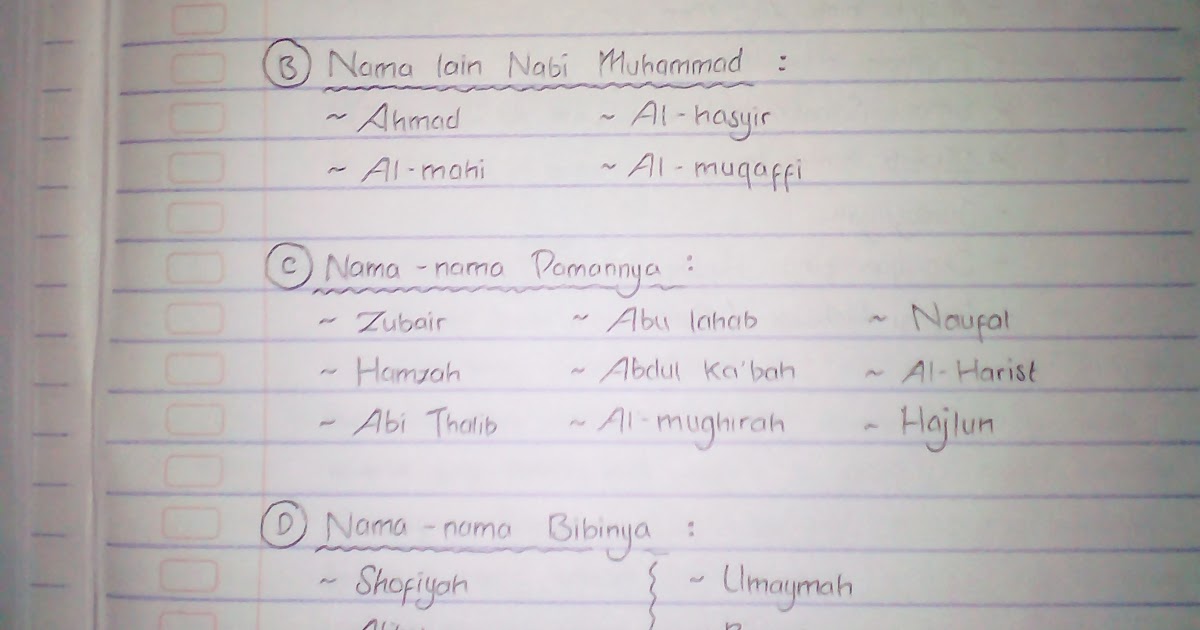 B Nama lain Nabi Muhammad :
~ Ahmad ~ Al-hasyir
~ Al-mahi ~ Al-muqaffi
C Nama-nama Pamannya :
~ Zubair ~ Abu lahab ~ Naufal
~ Hamzah ~ Abdul Ka'bah ~ Al-Harist
~ Abi Thalib ~ Al-mughirah ~ Hajlun
D Nama-nama Bibinya :
~ Shofiyah ~ Umaymah